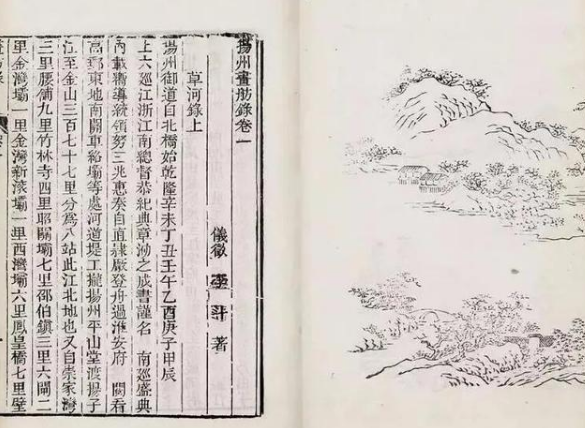 揚州畫舫錄卷一
儀徵 李斗 著
草河錄上
揚州御道自北橋始乾隆辛未丁丑壬午乙酉庚子甲辰
上六巡江浙江南總督恭紀典章泐之成書謹名 南巡盛典
內載嚮導統領努三兆惠奏自直隸厰登舟過淮安府 閱看
高郵東地南關車絡壩等處河道堤工攏揚州平山堂渡揚子
江至金山三百七十七里分爲八站此江北地也又自崇家灣
三里腰舖九里竹林寺四里昭關壩七里邵伯鎮三里六閘二
里金灣壩一里金灣新滾壩一里西灣壩六里鳳皇橋七里壁